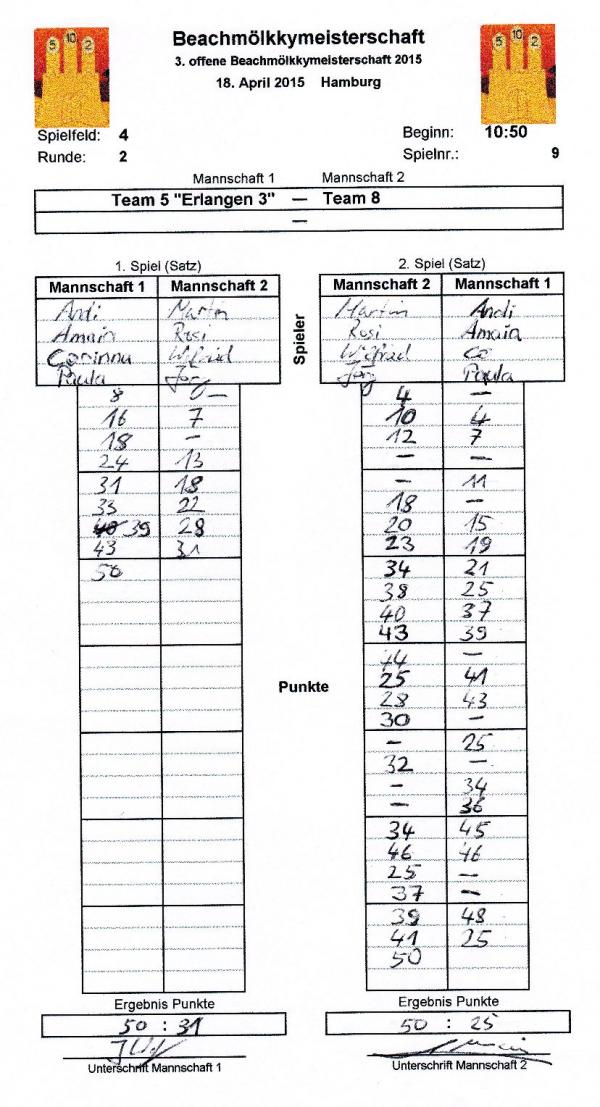 5 10 2
Beachmölkkymeisterschaft
5 10 2
3. offene Beachmölkkymeisterschaft 2015
18. April 2015 Hamburg
Spielfeld: 4 Beginn: 10:50
Runde: 2 Spielnr.: 9
Mannschaft 1 Mannschaft 2
Team 5 "Erlangen 3" — Team 8
—
1. Spiel (Satz) 2. Spiel (Satz)
Mannschaft 1 Mannschaft 2 Spieler Mannschaft 2 Mannschaft 1
Andi Martin Martin Andi
Amaia Rosi Rosi Amaia
Corinna Wilfried Wilfried Co
Paula Jörg Jörg Paula
8 0 — 4 —
16 7 10 4
18 — 12 7
24 13 — —
31 18 — 11
33 22 18 —
40 39 28 20 15
43 31 23 19
50 34 21
38 25
40 37
43 39
44 —
25 41
Punkte
28 43
30 —
— 25
32 —
— 34
— 36
34 45
46 46
25 —
37 —
39 48
41 25
50
Ergebnis Punkte Ergebnis Punkte
50 : 31 50 : 25
Unterschrift Mannschaft 1 Unterschrift Mannschaft 2